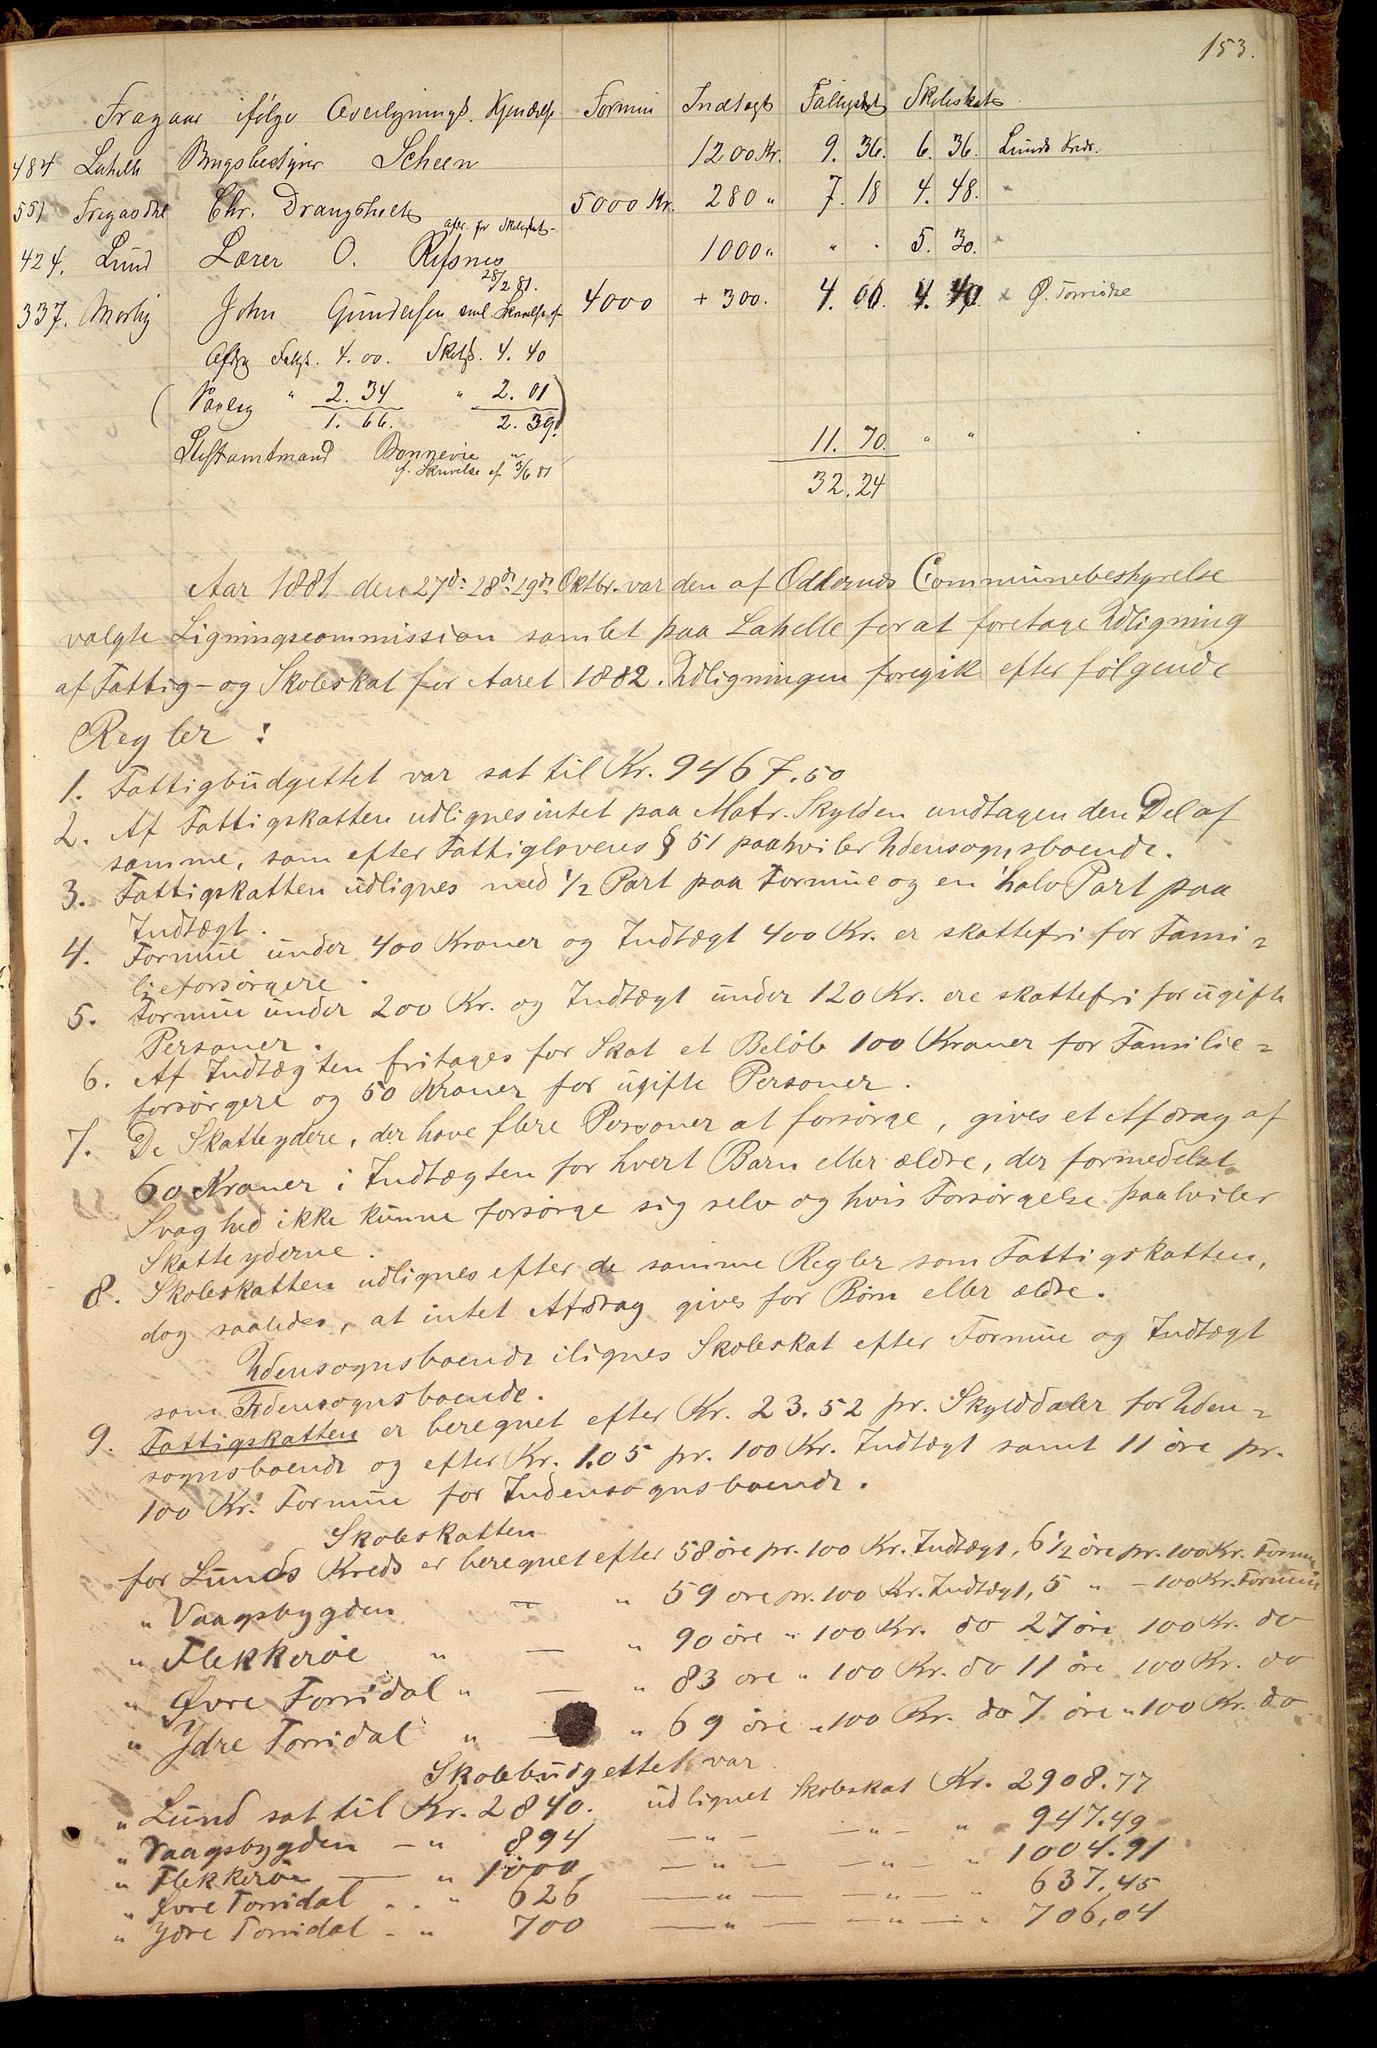 153.
Fragaar ifølge Overligningsk. Kjendelse Formue Indtægt Fattigskat Skoleskat
484 Lahelle Brugsbestyrer Scheen 1200 Kr. 9. 36. 6. 36. Lunds Kreds.
551 Chr. Drangsholt 5000 Kr. 280 " 7. 18 4. 48. "
424. Lund Lærer O. Risnes 1000 " " " 5. 30. "
28/2 81.
337. Mosby John Gundersen 4000 + 300. 4. 00. 4. 40 Ø. Torridal
Afdrag Fattigs. 4. 00. Skols. 4. 40
( Vanlig " 2. 34 " 2. 01 )
1. 66. 2. 39.
Stiftamtmand Bonnevie 11. 70. " "
cf. Skrivelse af 3/6 81
32. 24
Aar 1881 den 27de 28de 29de Oktbr. var den af Oddernes Communebestyrelse
valgte Ligningscommission samlet paa Lahelle for at foretage Udligning
af Fattig- og Skoleskat for Aaret 1882. Udligningen foregik efter følgende
Regler :
1. Fattigbudgettet var sat til Kr. 9467.50
2. Af Fattigskatten udlignes intet paa Matr. Skylden undtagen den Del af
samme, som efter Fattiglovens § 51 paahviler Udensognsboende.
3. Fattigskatten udlignes med 1/2 Part paa Formue og en halv Part paa
Indtægt.
4. Formue under 400 Kroner og Indtægt 400 Kr. er skattefri for Fami=
lieforsørgere.
5. Formue under 200 Kr. og Indtægt under 120 Kr. ere skattefri for ugifte
Personer.
6. Af Indtægten fritages for Skat et Beløb 100 Kroner for Familie=
forsørgere og 50 Kroner for ugifte Personer.
7. De Skatteydere, der have flere Personer at forsørge, gives et Afdrag af
60 Kroner i Indtægten for hvert Barn eller ældre, der formedelst
Svaghed ikke kunne forsørge sig selv og hvis Forsørgelse paahviler
Skatteyderne.
8. Skoleskatten udlignes efter de samme Regler som Fattigskatten,
dog saaledes, at intet Afdrag gives for Børn eller ældre.
Udensognsboende ilignes Skoleskat efter Formue og Indtægt
som Indensognsboende.
9. Fattigskatten er beregnet efter Kr. 23.52 pr. Skylddaler for Uden=
sognsboende og efter Kr. 1.05 pr. 100 Kr. Indtægt samt 11 øre pr.
100 Kr. Formue for Indensognsboende.
Skoleskatten
for Lunds Kreds er beregnet efter 58 øre pr. 100 Kr. Indtægt, 6 1/2 øre pr. 100 Kr. Formue
" Vaagsbygden — " 59 øre pr. 100 Kr. Indtægt, 5 " - 100 Kr. Formue
" Flekkerøe " — " 90 øre " 100 Kr. do 27 øre 100 Kr. do
" Øvre Torridal " — " 83 øre " 100 Kr. do 11 øre 100 Kr. do
" Ydre Torridal " — " 69 øre " 100 Kr. do 7 øre " 100 Kr. do
Skolebudgettet var
" Lund sat til Kr. 2840. udlignet Skoleskat Kr. 2908.77
" Vaagsbygden — " 894 — " — — " — " 947.49
" Flekkerøe — " 1000, — " — — " — " 1004.91
" Øvre Torridal - . " 626 — " — — " — " 637.45
" Ydre Torridal - " 700 — " — — " — " 706,04